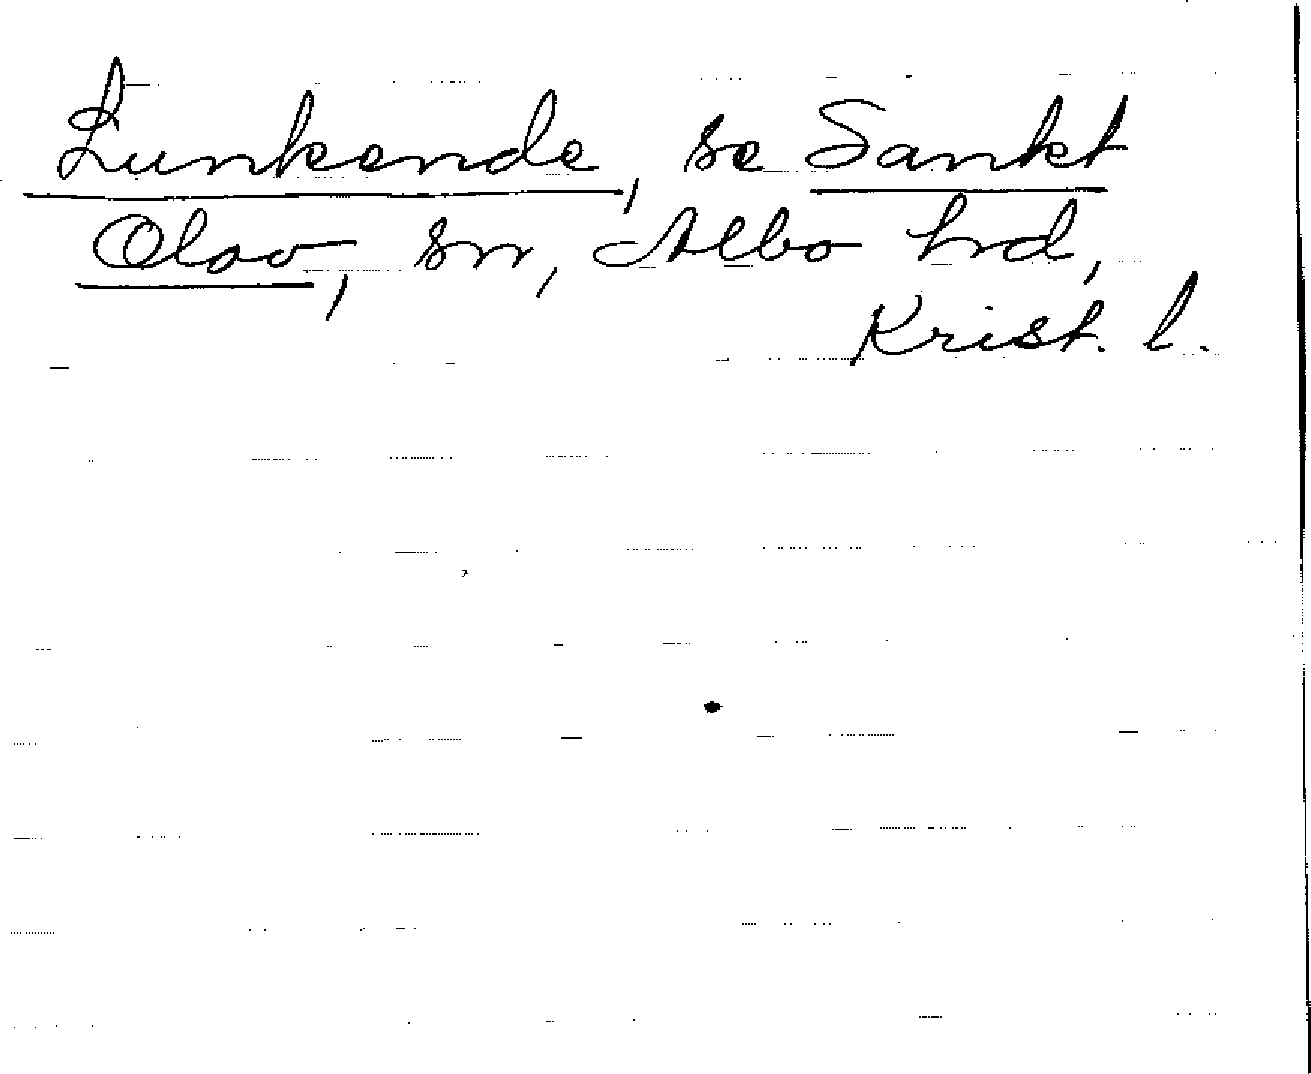 Lunkende, se Sankt
Olov, sn, Albo hrd,
Krist. l.